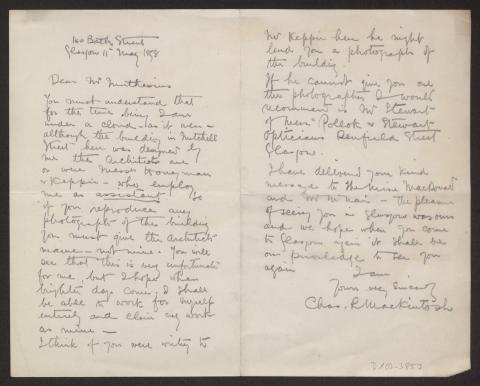 140 Bath Street
Glasgow 11th May 1898
Dear Mr Muthesius
You must understand that
for the time being I am
under a cloud - as it were -
although the building in Mitchell
Street here was designed by
me the Architects are
or were Messrs Honeyman
& Keppie - who employ
me as assistant. So
if you reproduce any
photographs of the building
you must give the architects
name - not mine. You will
see that this is very unfortunate
for me but I hope when
brighter days come, I shall
be able to work for myself
entirely and claim my work
as mine -
I think if you were writing to
Mr Keppie here he might
lend you a photograph of
the building.
If he cannot give you one
the photographer I would
recommend is Mr Stewart
of Messrs Pollok & Stewart
Opticians Renfield Street
Glasgow.
I have delivered your kind
message to the Misses Macdonald
and Mr McNair - the pleasure
of seeing you in Glasgow was ours
and we hope when you come
to Glasgow again it shall be
our priviledge to see you
again
I am
Yours very sincerely
Chas. R Mackintosh
D 102-3853